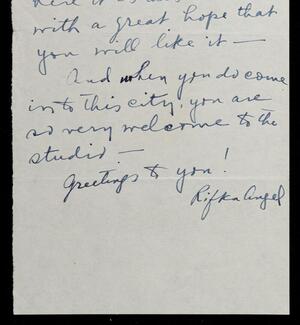 here it is
with a great hope that
you will like it —
And when you do come
into this city, you are
so very welcome to the
studio —
Greetings to you!
Rifka Angel